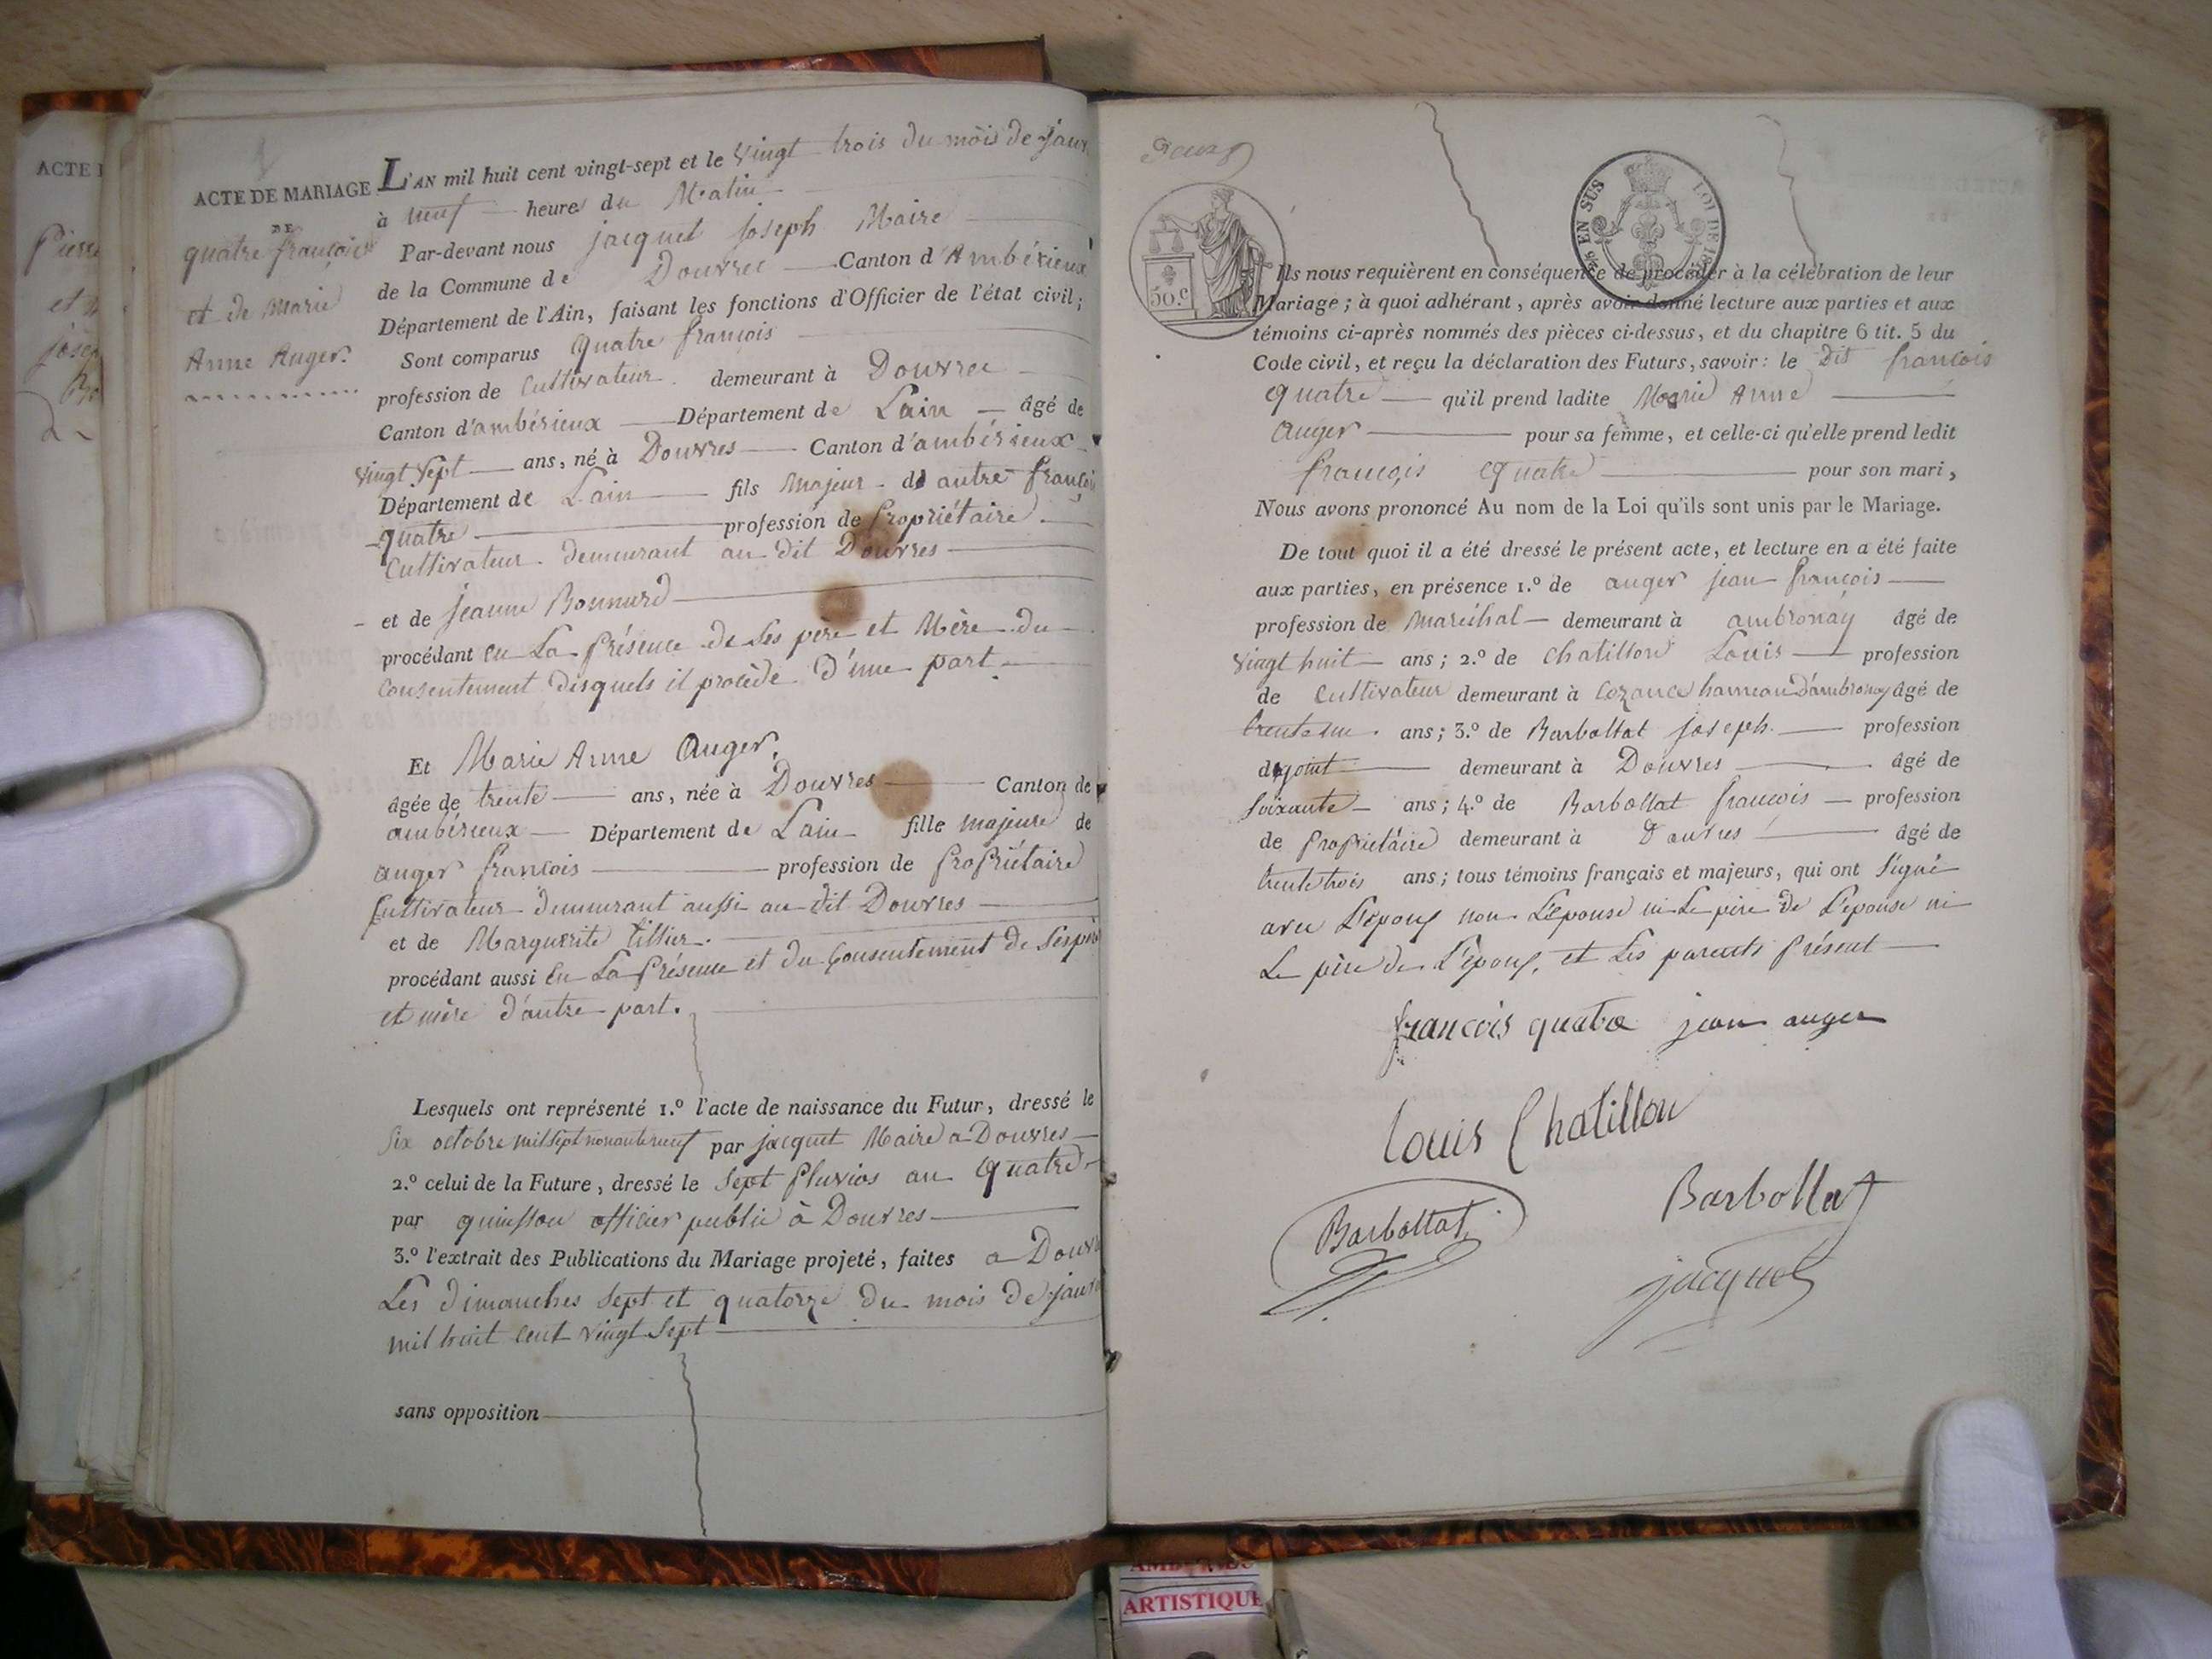 ACTE
Pierre
et
ACTE DE MARIAGE
DE
quatre françois
et de Marie
Anne Auger.
L'AN mil huit cent vingt-sept et le vingt trois du mois de janv
à neuf heures du Matin
Par-devant nous jacquet joseph Maire
de la Commune de Douvres Canton d'Ambérieux
Département de l'Ain, faisant les fonctions d'Officier de l'état civil;
Sont comparus quatre françois
profession de Cultivateur demeurant à Douvres
Canton d'ambérieux Département de Lain âgé de
vingt sept ans, né à Douvres Canton d'ambérieux
Département de Lain fils majeur de autre françois
quatre profession de propriétaire
Cultivateur demeurant au dit Douvres
et de jeanne Bonnard
procédant en La présence de ses père et Mère du
consentement disquels il procède d'une part
Et Marie Anne Auger.
âgée de trente ans, née à Douvres Canton de
ambérieux Département de Lain fille majeure de
auger françois profession de propriétaire
Cultivateur demeurant aussi au dit Douvres
et de Marguerite tissier.
procédant aussi En La présence et du Consentement de ses père
et mère d'autre part.
Lesquels ont représenté 1.º l'acte de naissance du Futur, dressé le
six octobre mil sept nonante neuf par jacquet Maire a Douvres
2.º celui de la Future, dressé le sept pluvios an quatre
par quinsson officier public à Douvres
3.º l'extrait des Publications du Mariage projeté, faites a Douv
Les dimanches sept et quatorze du mois de janv
mil huit cent vingt sept
sans opposition
50.c
EN SUS
LOI DE
Ils nous requièrent en conséquence de procéder à la célébration de leur
Mariage; à quoi adhérant, après avoir donné lecture aux parties et aux
témoins ci-après nommés des pièces ci-dessus, et du chapitre 6 tit. 5 du
Code civil, et reçu la déclaration des Futurs, savoir: le dit françois
quatre qu'il prend ladite Marie Anne
auger pour sa femme, et celle-ci qu'elle prend ledit
françois quatre pour son mari,
Nous avons prononcé Au nom de la Loi qu'ils sont unis par le Mariage.
De tout quoi il a été dressé le présent acte, et lecture en a été faite
aux parties, en présence 1.º de auger jean françois
profession de Maréchal demeurant à ambronay âgé de
vingt huit ans; 2.º de Chatillon Louis profession
de Cultivateur demeurant à Cozance hameau d'ambronay âgé de
trente un ans; 3.º de Barbollat joseph profession
adjoint demeurant à Douvres âgé de
soixante ans; 4.º de Barbollat françois profession
de propriétaire demeurant à Douvres âgé de
trente trois ans; tous témoins français et majeurs, qui ont signé
avec L'époux non L'épouse ni Le père de L'épouse ni
Le père de L'époux, et Les parents présent
françois quatre jean auger
Louis Chatillon
Barbollat
Barbollat
jacquet
ARTISTIQUE